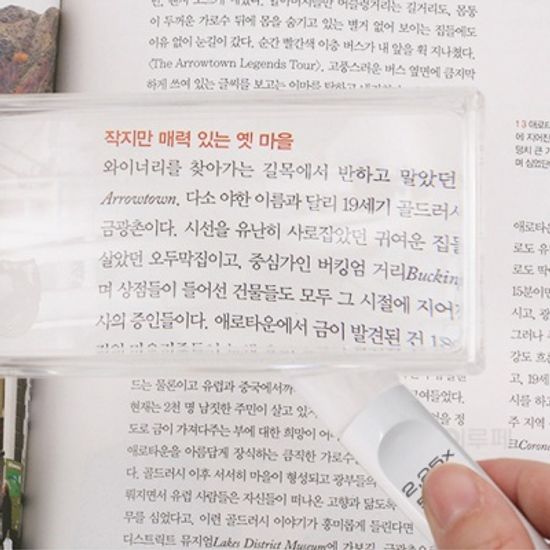 두꺼운 가로수 뒤에 몸을 숨기고 있는 별거 없어 보이는 집들에도
이유 없이 눈길이 갔다. 순간 빨간색 이층 버스가 내 앞을 휙 지나쳤다.
〈The Arrowtown Legends Tour〉. 고풍스러운 버스 옆면에 큼지막
하게 쓰여 있는 글씨를 보고는
작지만 매력 있는 옛 마을
와이너리를 찾아가는 길목에서 반하고 말았던
Arrowtown. 다소 야한 이름과 달리 19세기 골드러시
금광촌이다. 시선을 유난히 사로잡았던 귀여운 집들
살았던 오두막집이고, 중심가인 버킹엄 거리Bucking
며 상점들이 들어선 건물들도 모두 그 시절에 지어
사의 증인들이다. 애로타운에서 금이 발견된 건 18
드는 물론이고 유럽과 중국에서까
현재는 2천 명 남짓한 주민이 살고 있
도로 금이 가져다주는 부에 대한 희망이
애로타운을 아름답게 장식하는 큼직한 가로수
다. 골드러시 이후 서서히 마을이 형성되고 광부들의
뤄지면서 유럽 사람들은 자신들이 떠나온 고향과 닮도록
무를 심었다고. 이런 골드러시 이야기가 흥미롭게 들린다면
디스트릭트 뮤지엄Lakes District Museum에 가보길.
13 애로타
에 지어진
며 심었던
애로
로도 유
로도
15분이면
시고, 광
강도 흐
고, 19세
주 지역
크Corone
2.25×
이루페